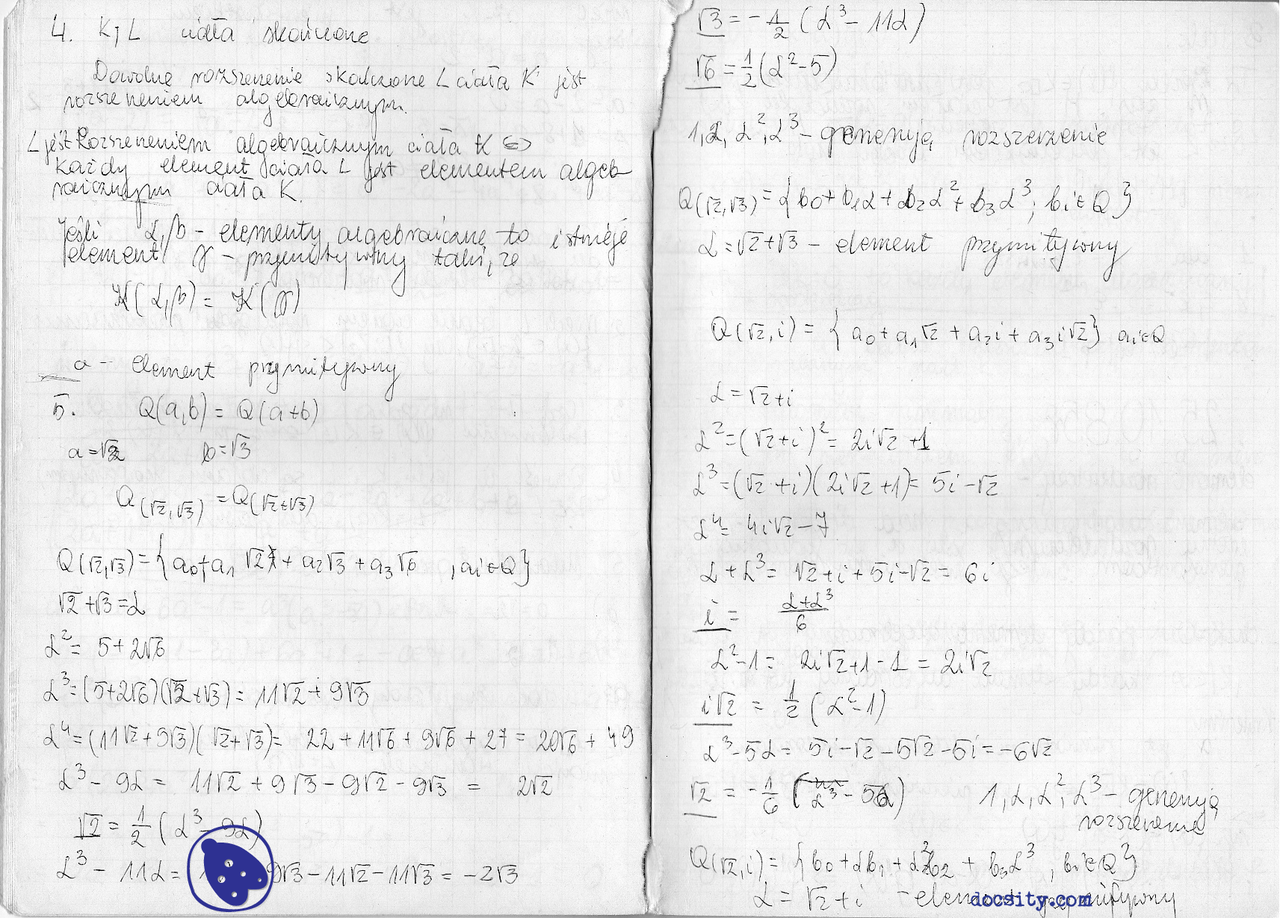 4. K, L ciała skończone
Dowolne rozszerzenie skończone L ciała K jest
rozszerzeniem algebraicznym.
L jest Rozszerzeniem algebraicznym ciała K ⇔
każdy element ciała L jest elementem algeb
raicznym ciała K.
Jeśli α, β - elementy algebraiczne to istnieje
element γ - prymitywny taki, że
K(α, β) = K(γ)
a - element prymitywny
5. Q(a, b) = Q(a+b)
a = √2 b = √3
Q(√2, √3) = Q(√2+√3)
Q(√2, √3) = { a₀ + a₁√2 + a₂√3 + a₃√6 , aᵢ ∈ Q }
√2 + √3 = α
α² = 5 + 2√6
α³ = (5+2√6)(√2+√3) = 11√2 + 9√3
α⁴ = (11√2 + 9√3)(√2+√3) = 22 + 11√6 + 9√6 + 27 = 20√6 + 49
α³ - 9α = 11√2 + 9√3 - 9√2 - 9√3 = 2√2
√2 = 1/2 (α³ - 9α)
α³ - 11α = 9√3 - 11√2 - 11√3 = -2√3
√3 = -1/2 (α³ - 11α)
√6 = 1/2 (α² - 5)
1, α, α², α³ - generują rozszerzenie
Q(√2, √3) = { b₀ + b₁α + b₂α² + b₃α³ ; bᵢ ∈ Q }
α = √2 + √3 - element prymitywny
Q(√2, i) = { a₀ + a₁√2 + a₂i + a₃i√2 } aᵢ ∈ Q
α = √2 + i
α² = (√2 + i)² = 2i√2 + 1
α³ = (√2 + i)(2i√2 + 1) = 5i - √2
α⁴ = 4i√2 - 7
α + α³ = √2 + i + 5i - √2 = 6i
i = (α + α³)/6
α² - 1 = 2i√2 + 1 - 1 = 2i√2
i√2 = 1/2 (α² - 1)
α³ - 5α = 5i - √2 - 5√2 - 5i = -6√2
√2 = -1/6 (α³ - 5α) 1, α, α², α³ - generują
rozszerzenie
Q(√2, i) = { b₀ + αb₁ + α²b₂ + b₃α³ , bᵢ ∈ Q }
α = √2 + i - element prymitywny
docsity.com